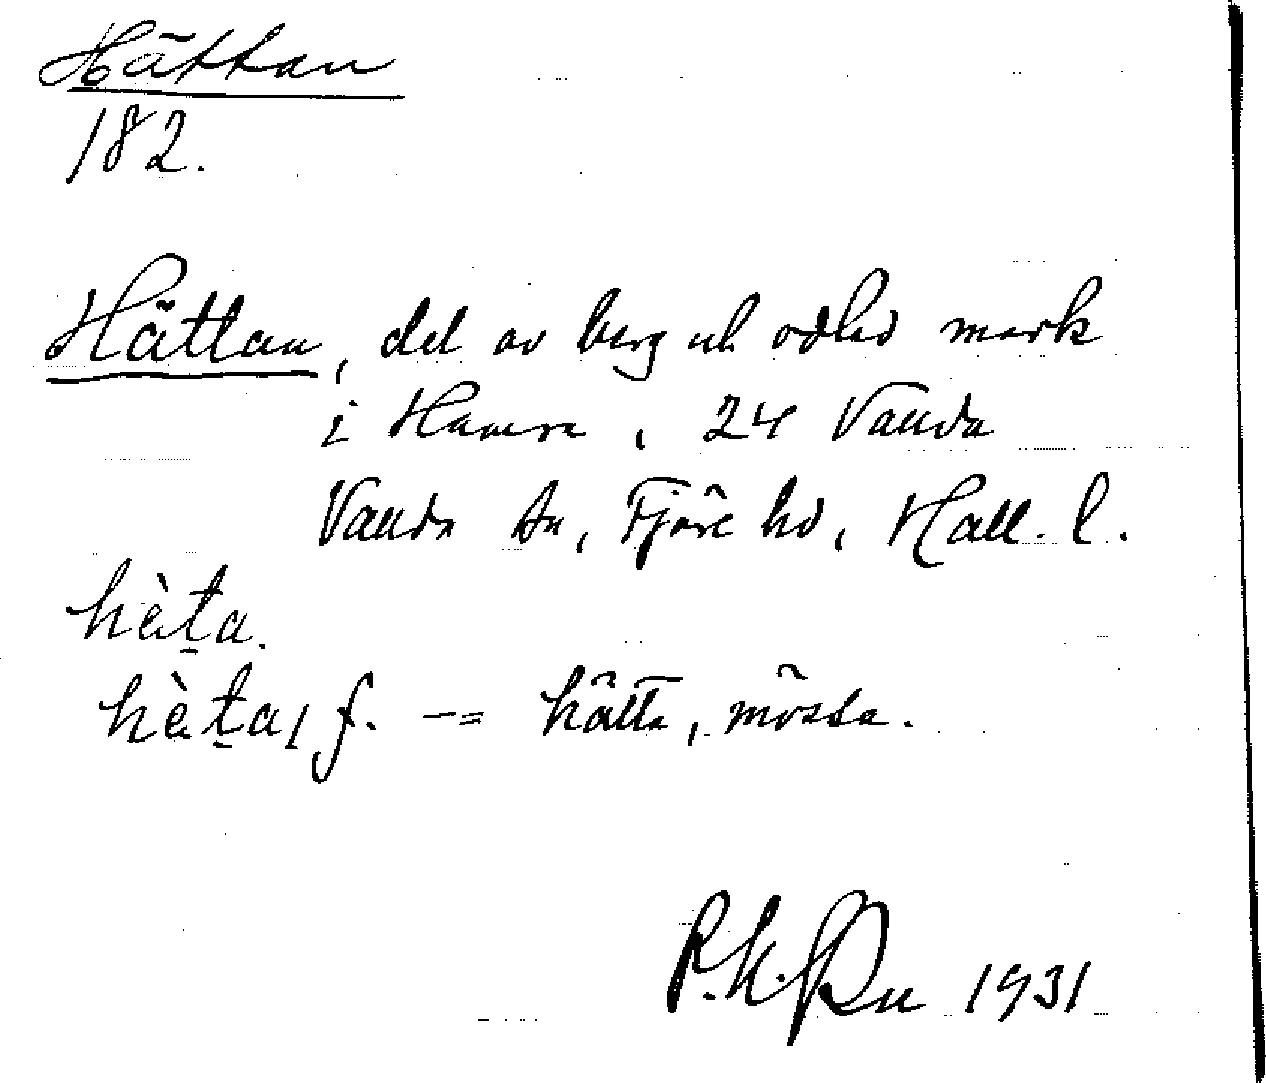 Hättan
182.
Hättan, del av berg och odlad mark
i Hamra, 24 Vanda
Vanda sn, Fjäre hd, Hall. l.
hèta.
hèta, f. -= hätta, mössa.
P.K. 1931